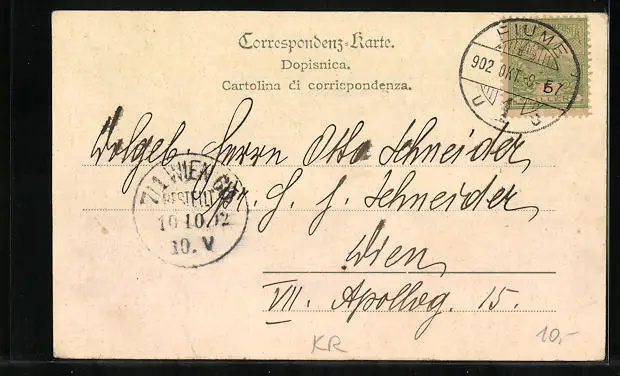 Correspondenz-Karte.
Dopisnica.
Cartolina di corrispondenza.
FIUME
902 OKT. -9
Wolgeb. Herrn Otto Schneider
Schneider
Wien
VII. Apollog. 15.
7/1 WIEN
BESTELLT
10 10 02
10. V
KR
10,-